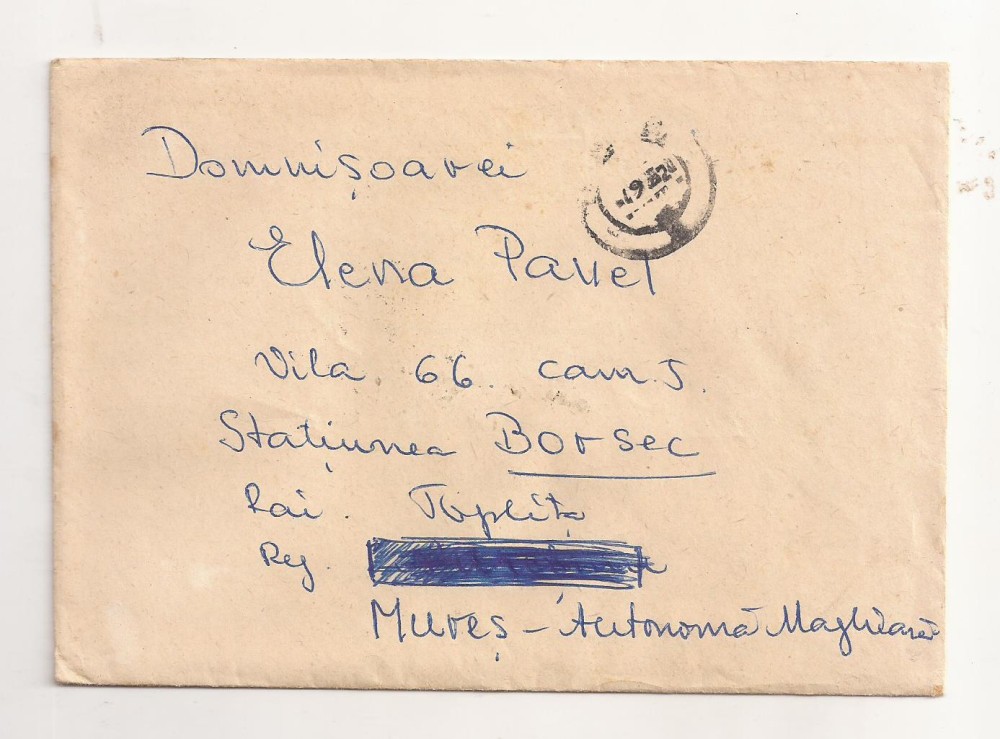 Domnișoarei
Elena Pavel
Vila 66. cam 5.
Stațiunea Borsec
Rai. Toplița
Reg.
Mureș - Autonomă Maghiară